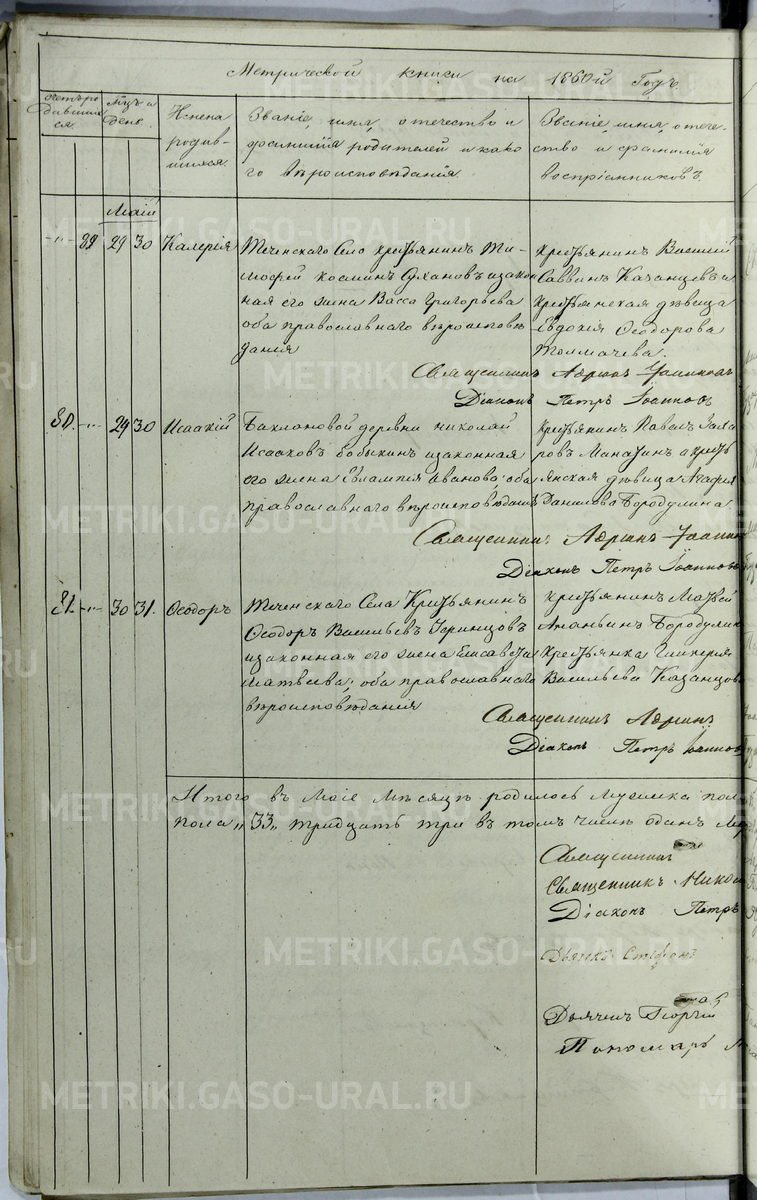 Метрической книги на 1860й Годъ.
Счетъ родившихся.
Мцъ и день.
Имена родившихся.
Званіе, имя, отечество и фамилія родителей и какого вѣроисповѣданія.
Званіе, имя, отечество и фамилія воспріемниковъ.
Маій
29 30 Калерія
Теченскаго Села крестьянинъ Тимофей Козминъ Сухановъ и законная его жена Васса Григорьева оба православнаго вѣроисповѣданія
Крестьянинъ Василій Саввинъ Казанцевъ и крестьянская дѣвица Евдокія Ѳеодорова Толмачева.
Священникъ Адріан
Діаконъ Петръ Іоанновъ
29 30 Исаакій
деревни Николай Исааковъ Бобыкинъ и законная его жена Евлампія Иванова, оба православнаго вѣроисповѣданія
Крестьянинъ Павелъ и крестьянская дѣвица Агафія Данилова Бородулина
Священникъ Адріан
Діаконъ Петръ Іоанновъ
31. 30 31. Ѳеодоръ
Теченскаго Села Крестьянинъ Ѳеодоръ Васильевъ и законная его жена Елисавета Матвѣева, оба православнаго вѣроисповѣданія
Крестьянинъ Матвей Ананьинъ Бородулин Крестьянка Гликерія Васильева Казанцов
Священникъ Адріан
Діаконъ Петръ Іоанновъ
Итого въ Маіе Мѣсяцѣ родилось мужеска пол
пола „33„ тридцать три въ томъ числѣ одинъ
Священникъ
Священникъ Никол
Діаконъ Петръ
Дьячекъ Стефанъ
Дьячекъ Георгій
Пономарь
METRIKI.GASO-URAL.RU